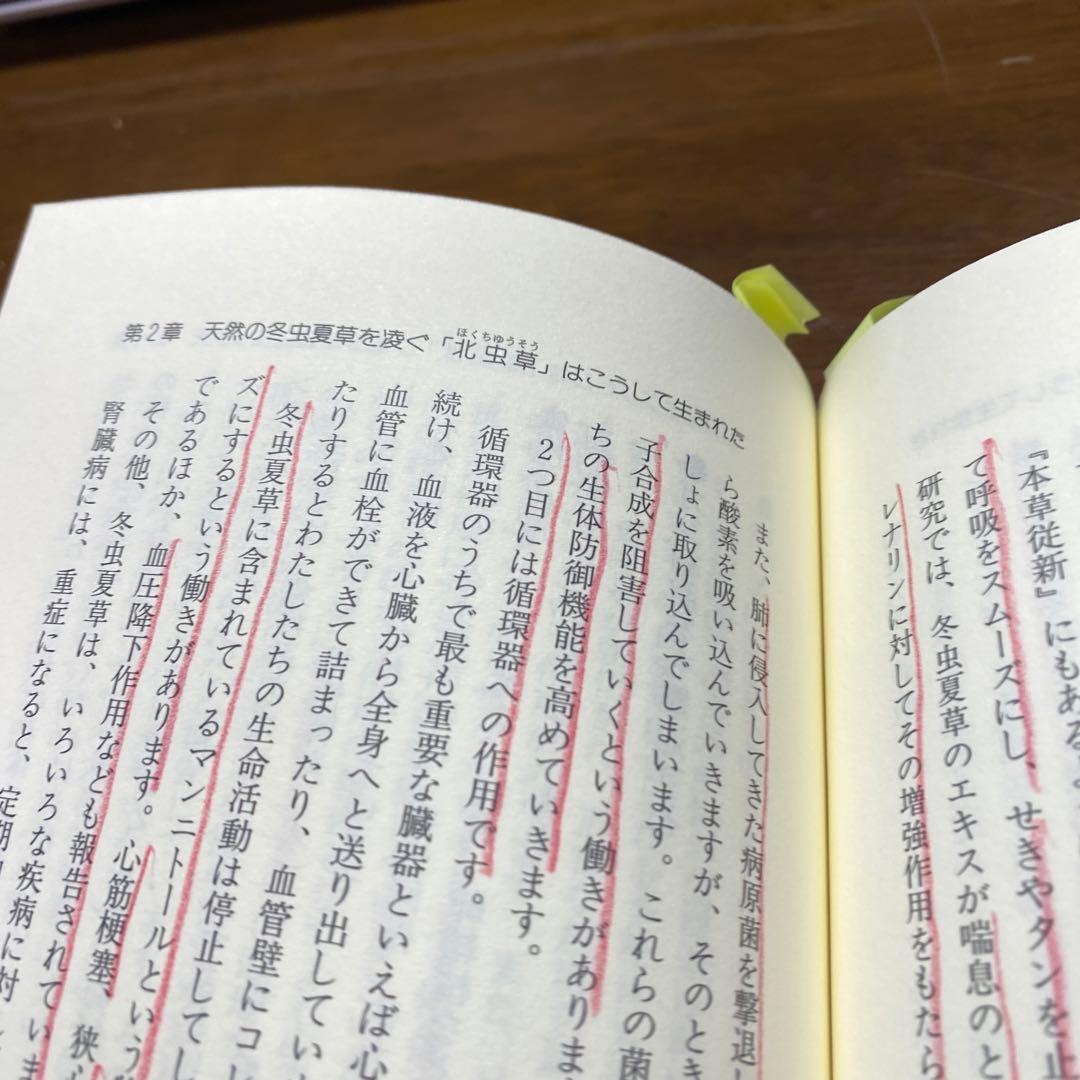 『本草従新』にもあるよ
て呼吸をスムーズにし、せきやタンを止
研究では、冬虫夏草のエキスが喘息のと
レナリンに対してその増強作用をもたら
第2章 天然の冬虫夏草を凌ぐ「北虫草」はこうして生まれた
ほくちゆうそう
また、肺に侵入してきた病原菌を撃退し
ら酸素を吸い込んでいきますが、そのとき
しょに取り込んでしまいます。これらの菌
子合成を阻害していくという働きがありま
ちの生体防御機能を高めていきます。
2つ目には循環器への作用です。
循環器のうちで最も重要な臓器といえば心
続け、血液を心臓から全身へと送り出してい
血管に血栓ができて詰まったり、血管壁にコレ
たりするとわたしたちの生命活動は停止してし
冬虫夏草に含まれているマンニトールという
ズにするという働きがあります。心筋梗塞、狭心
であるほか、血圧降下作用なども報告されていま
その他、冬虫夏草は、いろいろな疾病に対し
腎臓病には、重症になると、定期